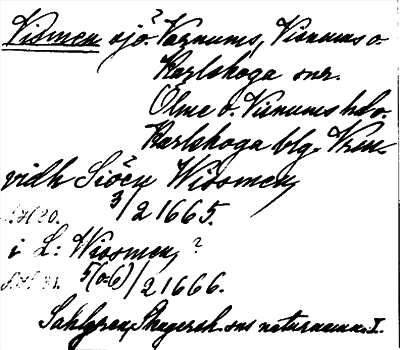 Vismen sjö. Varnums, Visnums o.
Karlskoga snr.
Ölme o. Visnums hdr o.
Karlskoga blg. Vrm.
vidh Siöen Wissmen,
3/2 1665.
i L: Wissmen, ?
5(o:6)/2 1666.
Sahlgren, Skagersh. sns naturnamn I.